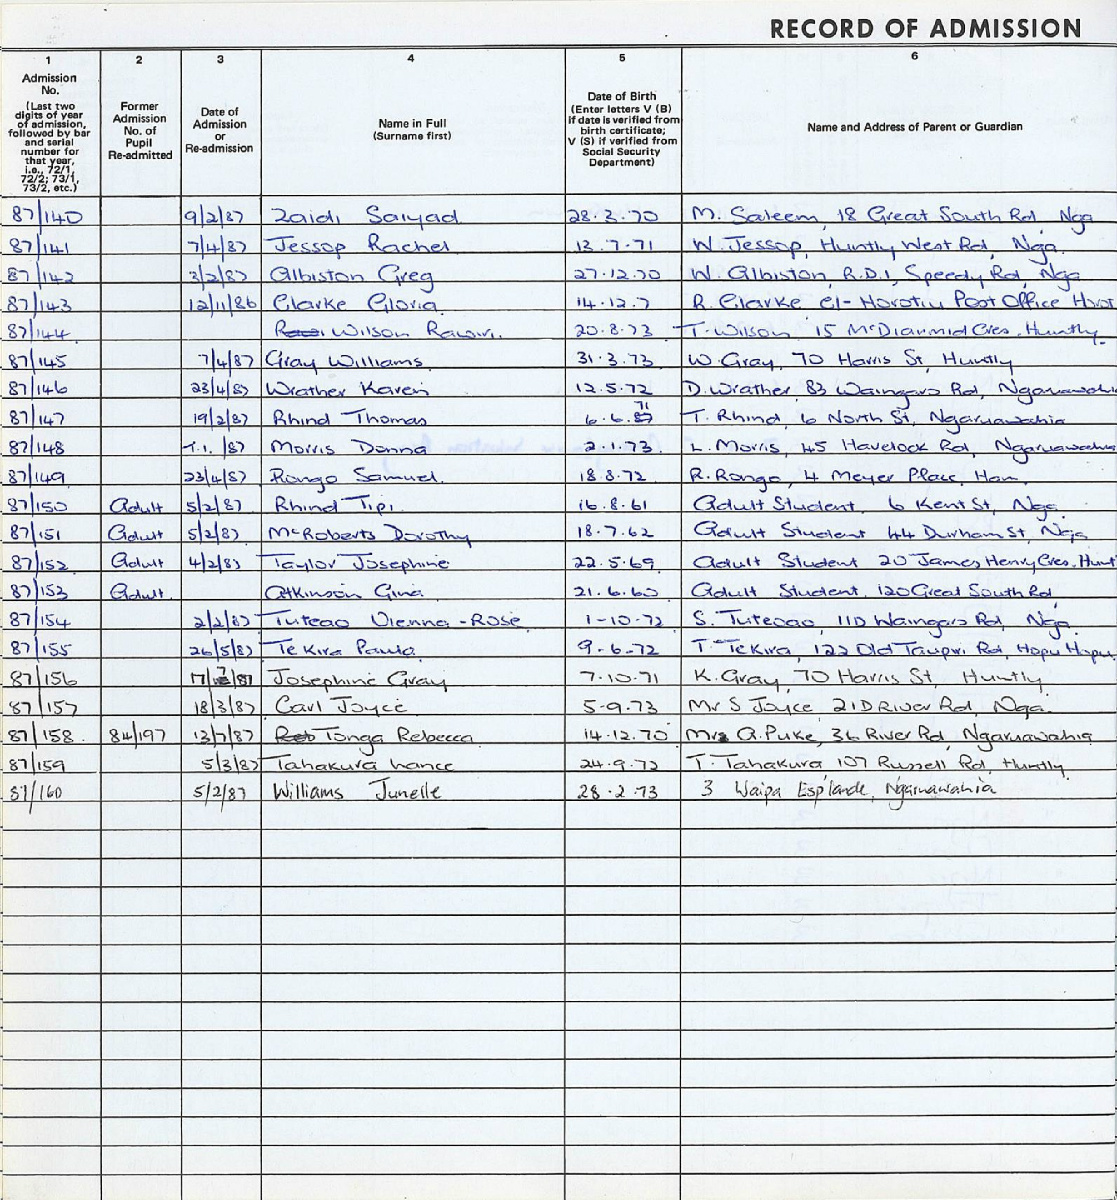 RECORD OF ADMISSION
1 2 3 4 5 6
Admission No. (Last two digits of year of admission, followed by bar and serial number for that year, i.e., 72/1, 72/2; 73/1, 73/2, etc.)
Former Admission No. of Pupil Re-admitted
Date of Admission or Re-admission
Name in Full (Surname first)
Date of Birth (Enter letters V (B) if date is verified from birth certificate; V (S) if verified from Social Security Department)
Name and Address of Parent or Guardian
87/140 9/2/87 Zaidi Saiyad 28.3.70 M. Saleem, 18 Great South Rd, Nga
87/141 7/4/87 Jessop Rachel 13.7.71 W. Jessop, Huntly West Rd, Nga.
87/142 3/2/87 Albiston Greg 27.12.70 W. Albiston, R.D.1, Speedy Rd, Nga
87/143 12/11/86 Clarke Gloria 14.12.7 R. Clarke c/- Horotiu Post Office Horot
87/144 Wilson Rawiri. 20.8.73 T. Wilson 15 McDiarmid Cres. Huntly
87/145 7/4/87 Gray Williams 31.3.73 W. Gray, 70 Harris St, Huntly
87/146 23/4/87 Wrather Karen 12.5.72 D. Wrather, 83 Waingaro Rd, Ngaruawahia
87/147 19/2/87 Rhind Thomas 6.6.71 T. Rhind, 6 North St, Ngaruawahia
87/148 /87 Morris Donna 2.1.73. L. Morris, 45 Havelock Rd, Ngaruawahia
87/149 23/4/87 Rongo Samuel 18.8.72 R. Rongo, 4 Meyer Place, Ham.
87/150 Adult 5/2/87 Rhind Tipi 16.8.61 Adult Student. 6 Kent St, Nga.
87/151 Adult 5/2/87 McRoberts Dorothy 18.7.62 Adult Student 44 Durham St, Nga
87/152 Adult 4/2/87 Taylor Josephine 22.5.69 Adult Student 20 James Henry Cres. Hunt
87/153 Adult. Atkinson Gina 21.6.60 Adult Student, 120 Great South Rd
87/154 2/2/87 Tuteao Vienna-Rose 1-10-72 S. Tuteao, 11D Waingaro Rd, Nga.
87/155 26/5/87 Te Kira Paula 9-6-72 T. Te Kira, 122 Old Taupiri Rd, Hopu Hopu
87/156 17/7/87 Josephine Gray 7-10-71 K. Gray, 70 Harris St, Huntly
87/157 18/3/87 Carl Joyce 5-9-73 Mr S Joyce 21D River Rd, Nga.
87/158 84/197 13/7/87 Tonga Rebecca 14.12.70 Mrs A. Puke, 36 River Rd, Ngaruawahia
87/159 5/3/87 Tahakura Lance 24.9.72 T. Tahakura 107 Russell Rd, Huntly
87/160 5/2/87 Williams Junelle 28.2.73 3 Waipa Esplande, Ngaruawahia